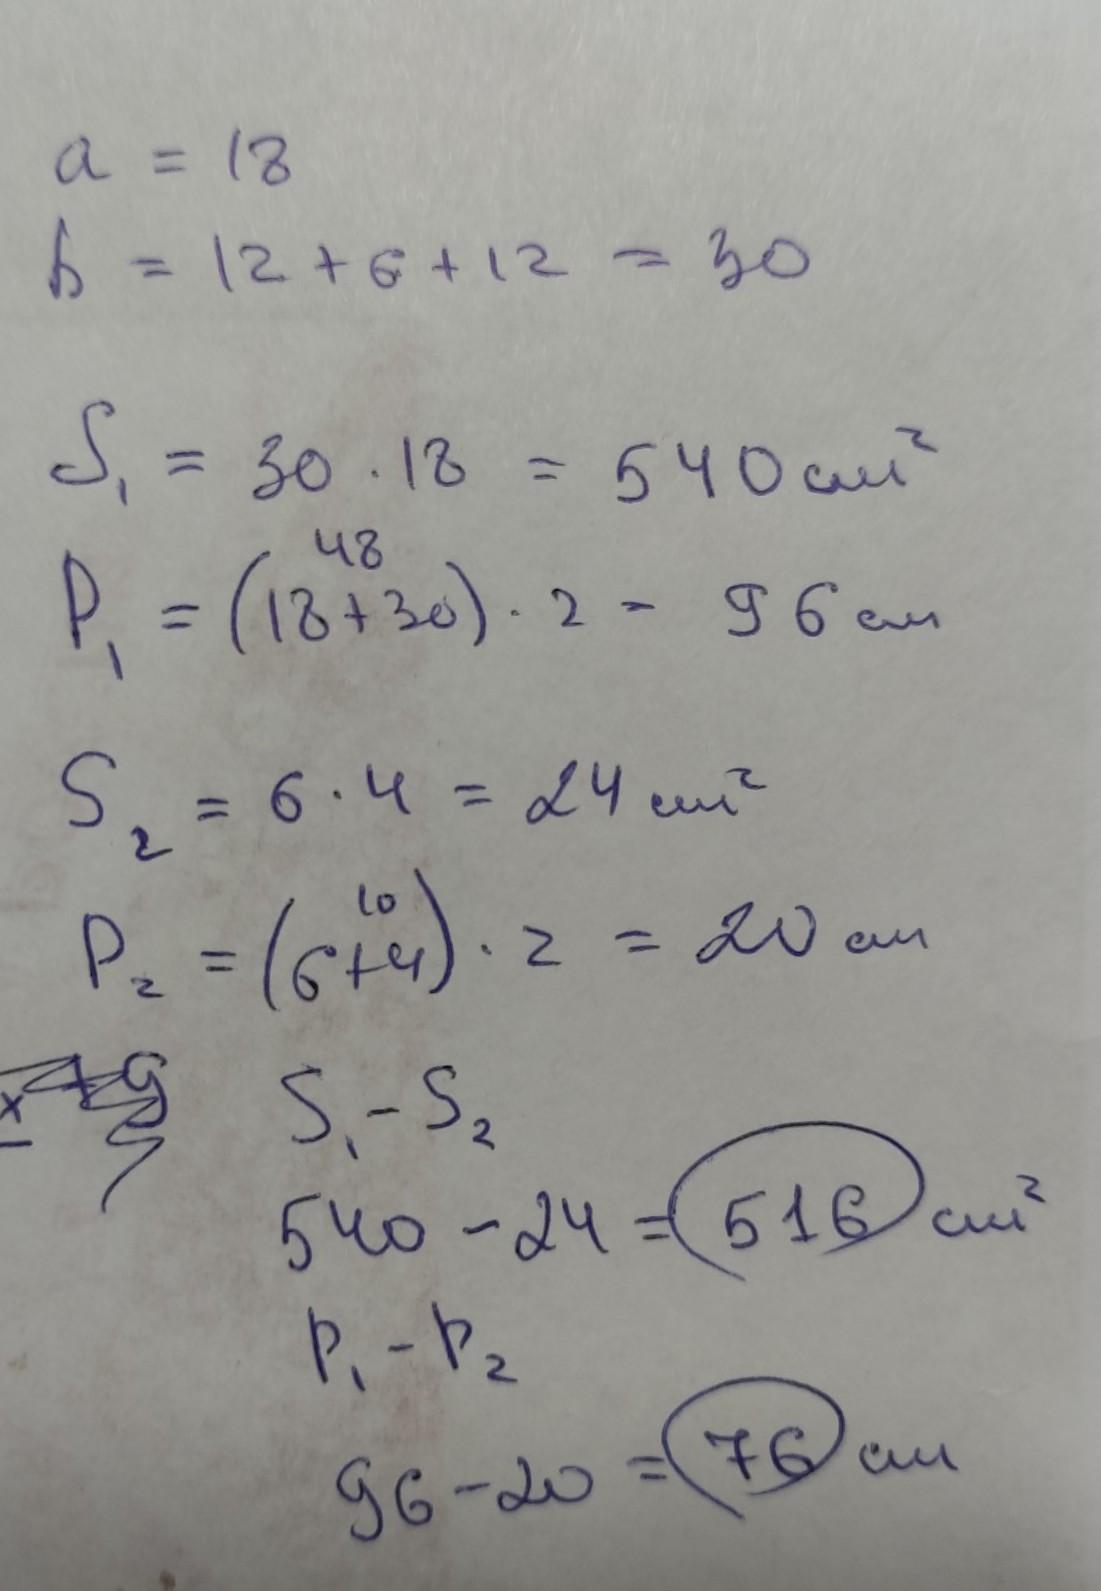 a = 18
b = 12 + 6 + 12 = 30
S₁ = 30 · 18 = 540 см²
48
P₁ = (18+30) · 2 - 96 см
S₂ = 6 · 4 = 24 см²
10
P₂ = (6+4) · 2 = 20 см
S₁ - S₂
540 - 24 = 516 см²
P₁ - P₂
96 - 20 = 76 см